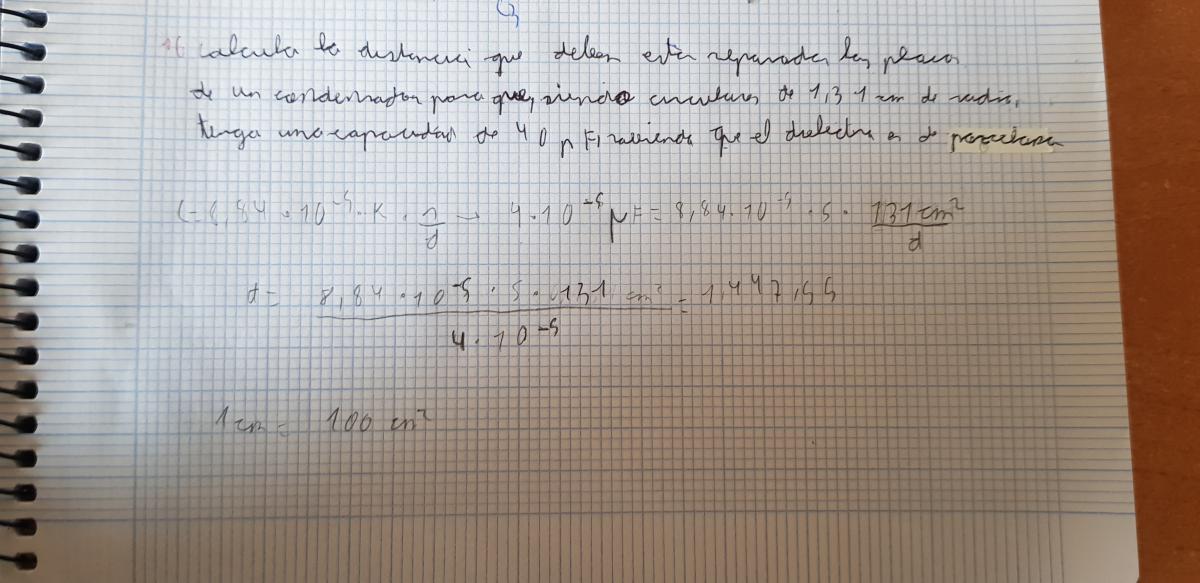 16 Calcula la distancia que deben estar separadas las placas
de un condensador para que, siendo circulares de 1,31 cm de radio,
tenga una capacidad de 40 pF, sabiendo que el dielectrico es de porcelana
C=8,84·10⁻⁵·K·s/d → 4·10⁻⁵ μF = 8,84·10⁻⁵·5·131cm²/d
d= 8,84·10⁻⁵·5·131 cm²/4·10⁻⁵ = 1,447,55
1 cm = 100 cm²